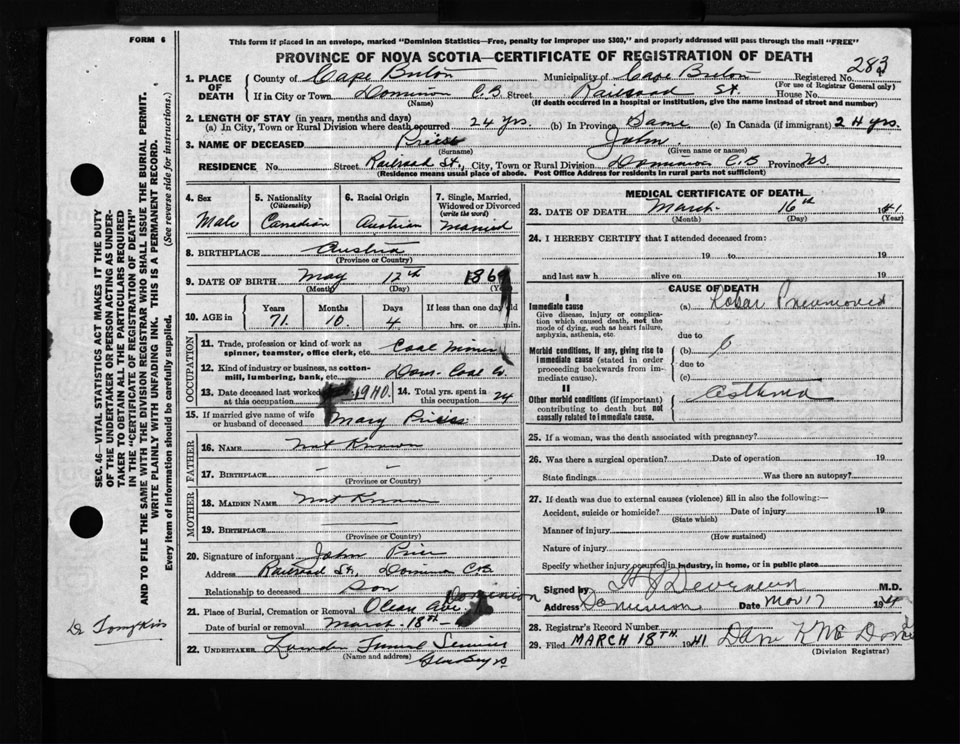 FORM 6
This form if placed in an envelope, marked "Dominion Statistics—Free, penalty for improper use $300," and properly addressed will pass through the mail "FREE"
PROVINCE OF NOVA SCOTIA—CERTIFICATE OF REGISTRATION OF DEATH
283
1. PLACE OF DEATH County of Cape Breton Municipality of Cape Breton Registered No.
(For use of Registrar General only)
If in City or Town Dominion C.B. Street Railroad St. House No.
(Name) (If death occurred in a hospital or institution, give the name instead of street and number)
2. LENGTH OF STAY (in years, months and days)
(a) In City, Town or Rural Division where death occurred 24 yrs. (b) In Province Same (c) In Canada (if immigrant) 24 yrs.
3. NAME OF DECEASED John
(Surname) (Given name or names)
RESIDENCE No. Street Railroad St., City, Town or Rural Division Dominion C.B Province NS
(Residence means usual place of abode. Post Office Address for residents in rural parts not sufficient)
4. Sex
Male
5. Nationality (Citizenship)
Canadian
6. Racial Origin
Austrian
7. Single, Married, Widowed or Divorced (write the word)
Married
8. BIRTHPLACE Austria
(Province or Country)
9. DATE OF BIRTH May 12th 186
(Month) (Day)
10. AGE in Years Months Days If less than one day
71. 10. 4. hrs. or min.
OCCUPATION
11. Trade, profession or kind of work as spinner, teamster, office clerk, etc. Coal miner
12. Kind of industry or business, as cotton-mill, lumbering, bank, etc. Dom. Coal Co.
13. Date deceased last worked at this occupation 1940.
14. Total yrs. spent in this occupation 24
15. If married give name of wife or husband of deceased Mary
FATHER
16. NAME not Known
17. BIRTHPLACE – –
(Province or Country)
MOTHER
18. MAIDEN NAME not Known
19. BIRTHPLACE
(Province or Country)
20. Signature of informant John
Address Railroad St., Dominion C.B.
Relationship to deceased Son
21. Place of Burial, Cremation or Removal Ocean Ave. Dominion
Date of burial or removal March-18th-
22. UNDERTAKER Funeral Service
(Name and address) Glace Bay NS
MEDICAL CERTIFICATE OF DEATH
23. DATE OF DEATH March 16th 1941
(Month) (Day) (Year)
24. I HEREBY CERTIFY that I attended deceased from:
19 to 19
and last saw h alive on 19
CAUSE OF DEATH
I
Immediate cause (a)
Give disease, injury or complication which caused death, not the mode of dying, such as heart failure, asphyxia, asthenia, etc.
due to
Morbid conditions, if any, giving rise to immediate cause (stated in order proceeding backwards from immediate cause). (b)
due to
(c)
II
Other morbid conditions (if important) contributing to death but not causally related to immediate cause. Asthma
25. If a woman, was the death associated with pregnancy?
26. Was there a surgical operation? Date of operation 19
State findings Was there an autopsy?
27. If death was due to external causes (violence) fill in also the following:—
Accident, suicide or homicide? Date of injury 19
(State which)
Manner of injury
(How sustained)
Nature of injury
Specify whether injury occurred in industry, in home, or in public place
Signed by M.D.
Address Dominion Date 17 19
28. Registrar's Record Number
29. Filed MARCH 18TH 1941 Dan
(Division Registrar)
SEC. 46—VITAL STATISTICS ACT MAKES IT THE DUTY
OF THE UNDERTAKER OR PERSON ACTING AS UNDER-
TAKER TO OBTAIN ALL THE PARTICULARS REQUIRED
IN THE "CERTIFICATE OF REGISTRATION OF DEATH"
AND TO FILE THE SAME WITH THE DIVISION REGISTRAR WHO SHALL ISSUE THE BURIAL PERMIT.
WRITE PLAINLY WITH UNFADING INK. THIS IS A PERMANENT RECORD.
Every item of information should be carefully supplied. (See reverse side for instructions.)